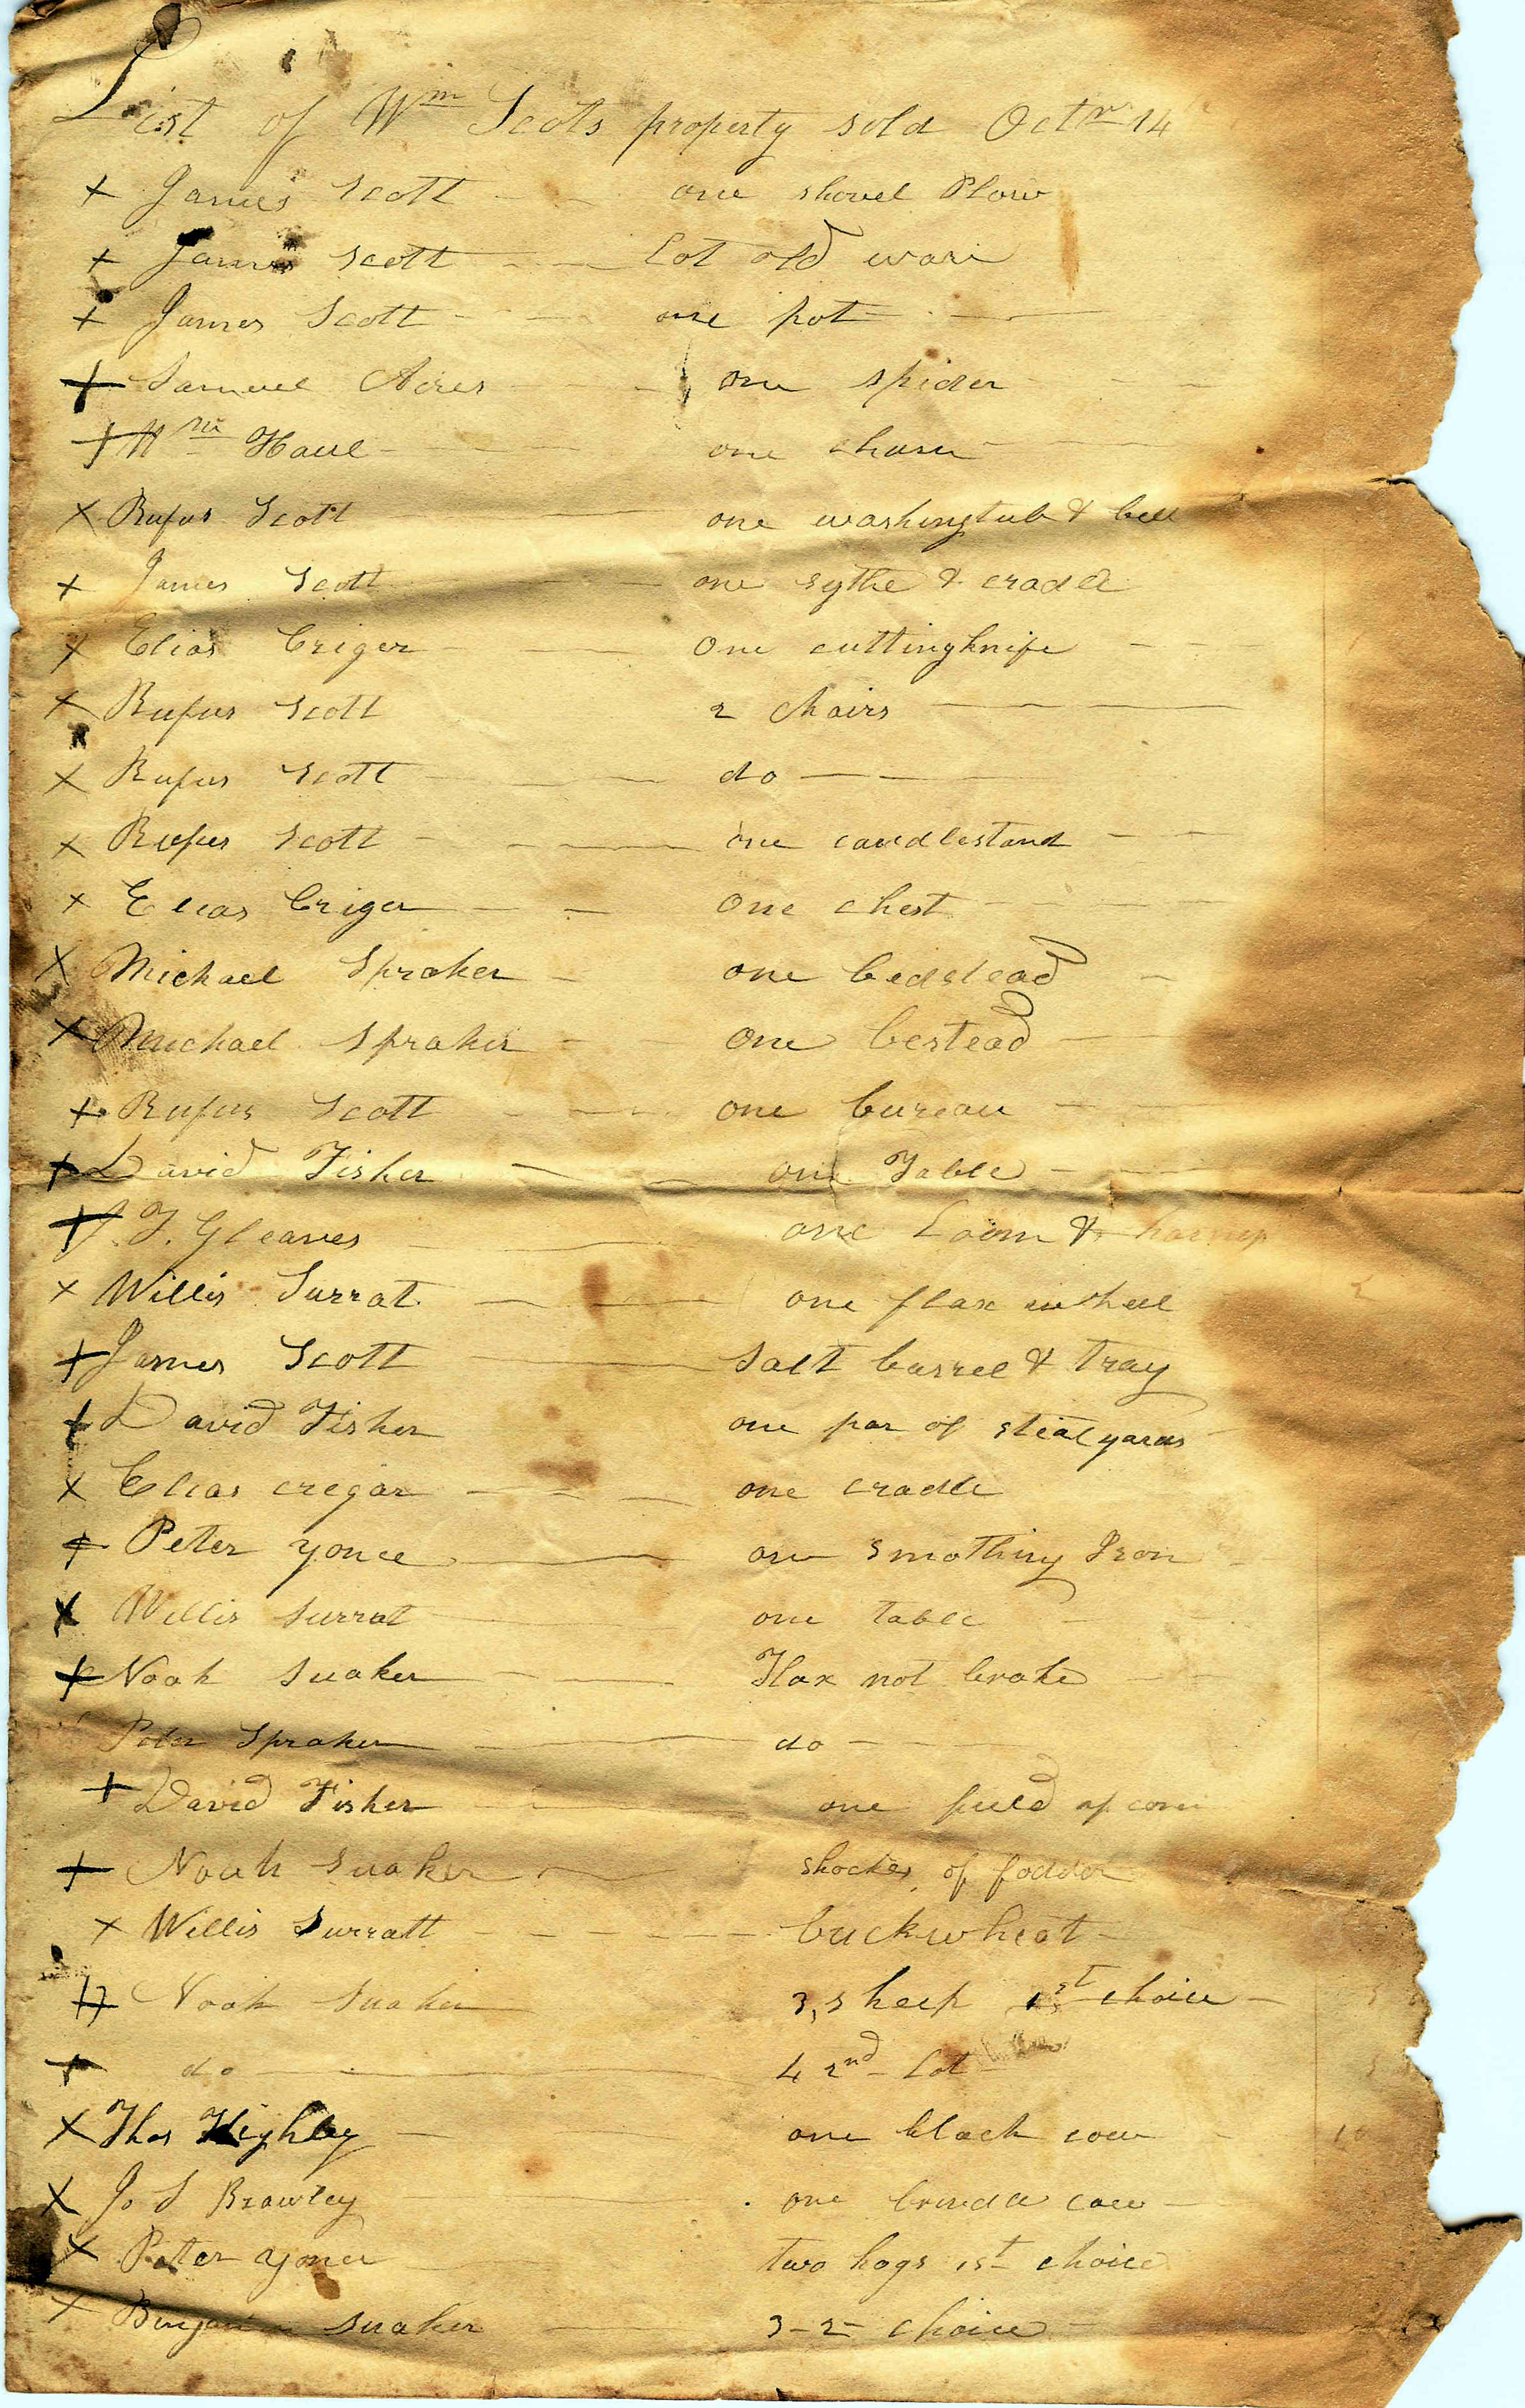 List of Wm Scots property sold Octr 14
+ James Scott one shovel Plow
+ James Scott Lot old ware
+ James Scott one pot
+ Samuel Acres one spider
+ Wm Haul one churn
x Rufus Scott one washingtub & bell
+ James Scott one sythe & cradle
x Elias Criger One cuttingknife
x Rufus Scott 2 chairs
x Rufus Scott do
x Rufus Scott one candlestand
x Elias Criger One chest
x Michael Spraker one bedstead
x Michael Spraker One bestead
+ Rufus Scott one bureau
+ David Fisher one Table
+ J. T. Gleaves one Loom &
x Willis Surrat one flax wheel
+ James Scott Salt barrel & tray
+ David Fisher one par of stealyards
x Elias cregar one cradle
+ Peter yonce one smothing Iron
x Willis Surrat one table
+ Noah Suaker Flax not brake
Peter Spraker do
+ David Fisher one field of corn
+ Noah Suaker shockes of fodder
x Willis Surratt buckwheat
+ Noah Suaker 3, sheep 1st choice 3
+ do 4 2nd Lot 3
x Thos Highley one black cow 10
x Jo S Brawley one brindle cow
x Peter yonce two hogs 1st choice
x Suaker 3-2- choice